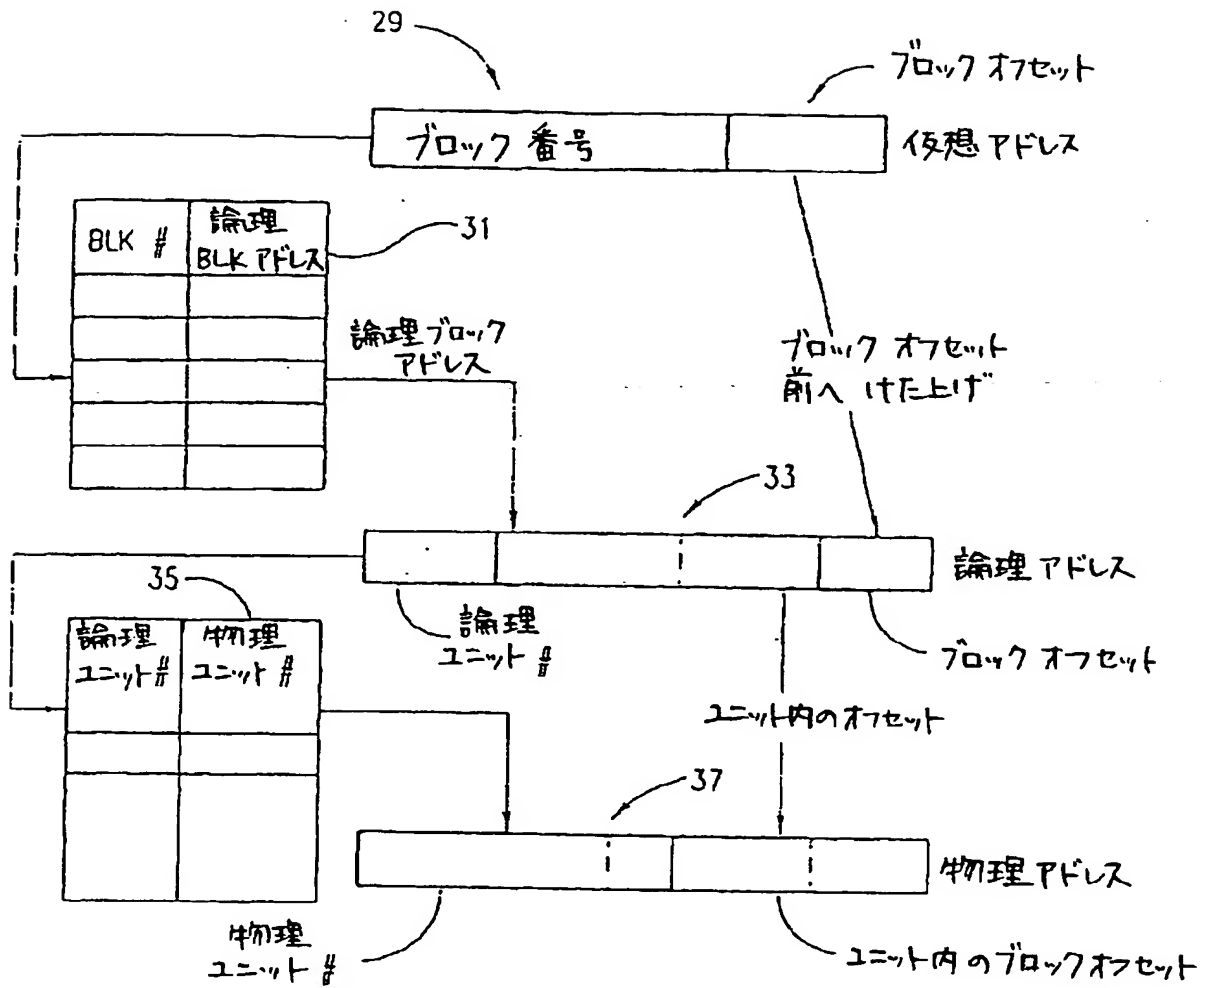 29
ブロック オフセット
ブロック 番号
仮想アドレス
BLK #
論理
BLK アドレス
31
論理ブロック
アドレス
ブロック オフセット
前へ けた上げ
33
論理アドレス
35
論理
ユニット #
ブロック オフセット
論理
ユニット #
物理
ユニット #
ユニット内のオフセット
37
物理アドレス
物理
ユニット #
ユニット内のブロックオフセット